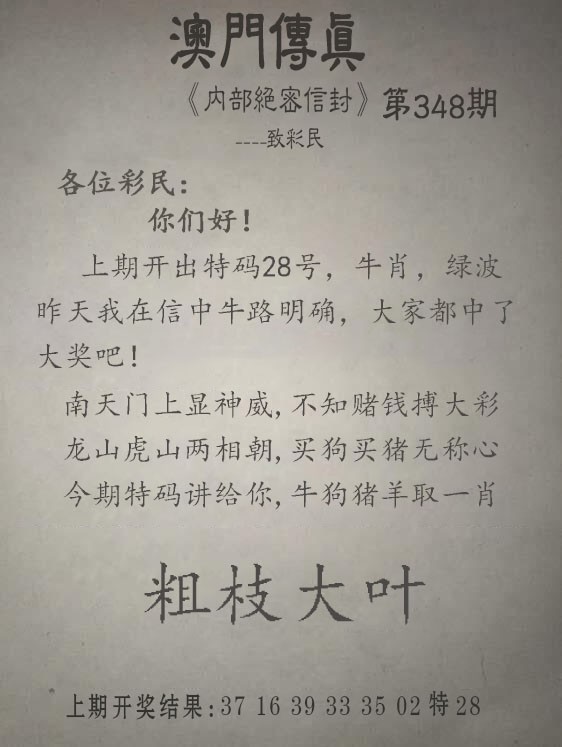 澳門傳眞
《內部絕密信封》第348期
----致彩民
各位彩民：
你们好！
上期开出特码28号，牛肖，绿波
昨天我在信中牛路明确，大家都中了
大奖吧！
南天门上显神威,不知赌钱搏大彩
龙山虎山两相朝,买狗买猪无称心
今期特码讲给你,牛狗猪羊取一肖
粗枝大叶
上期开奖结果:37 16 39 33 35 02 特 28